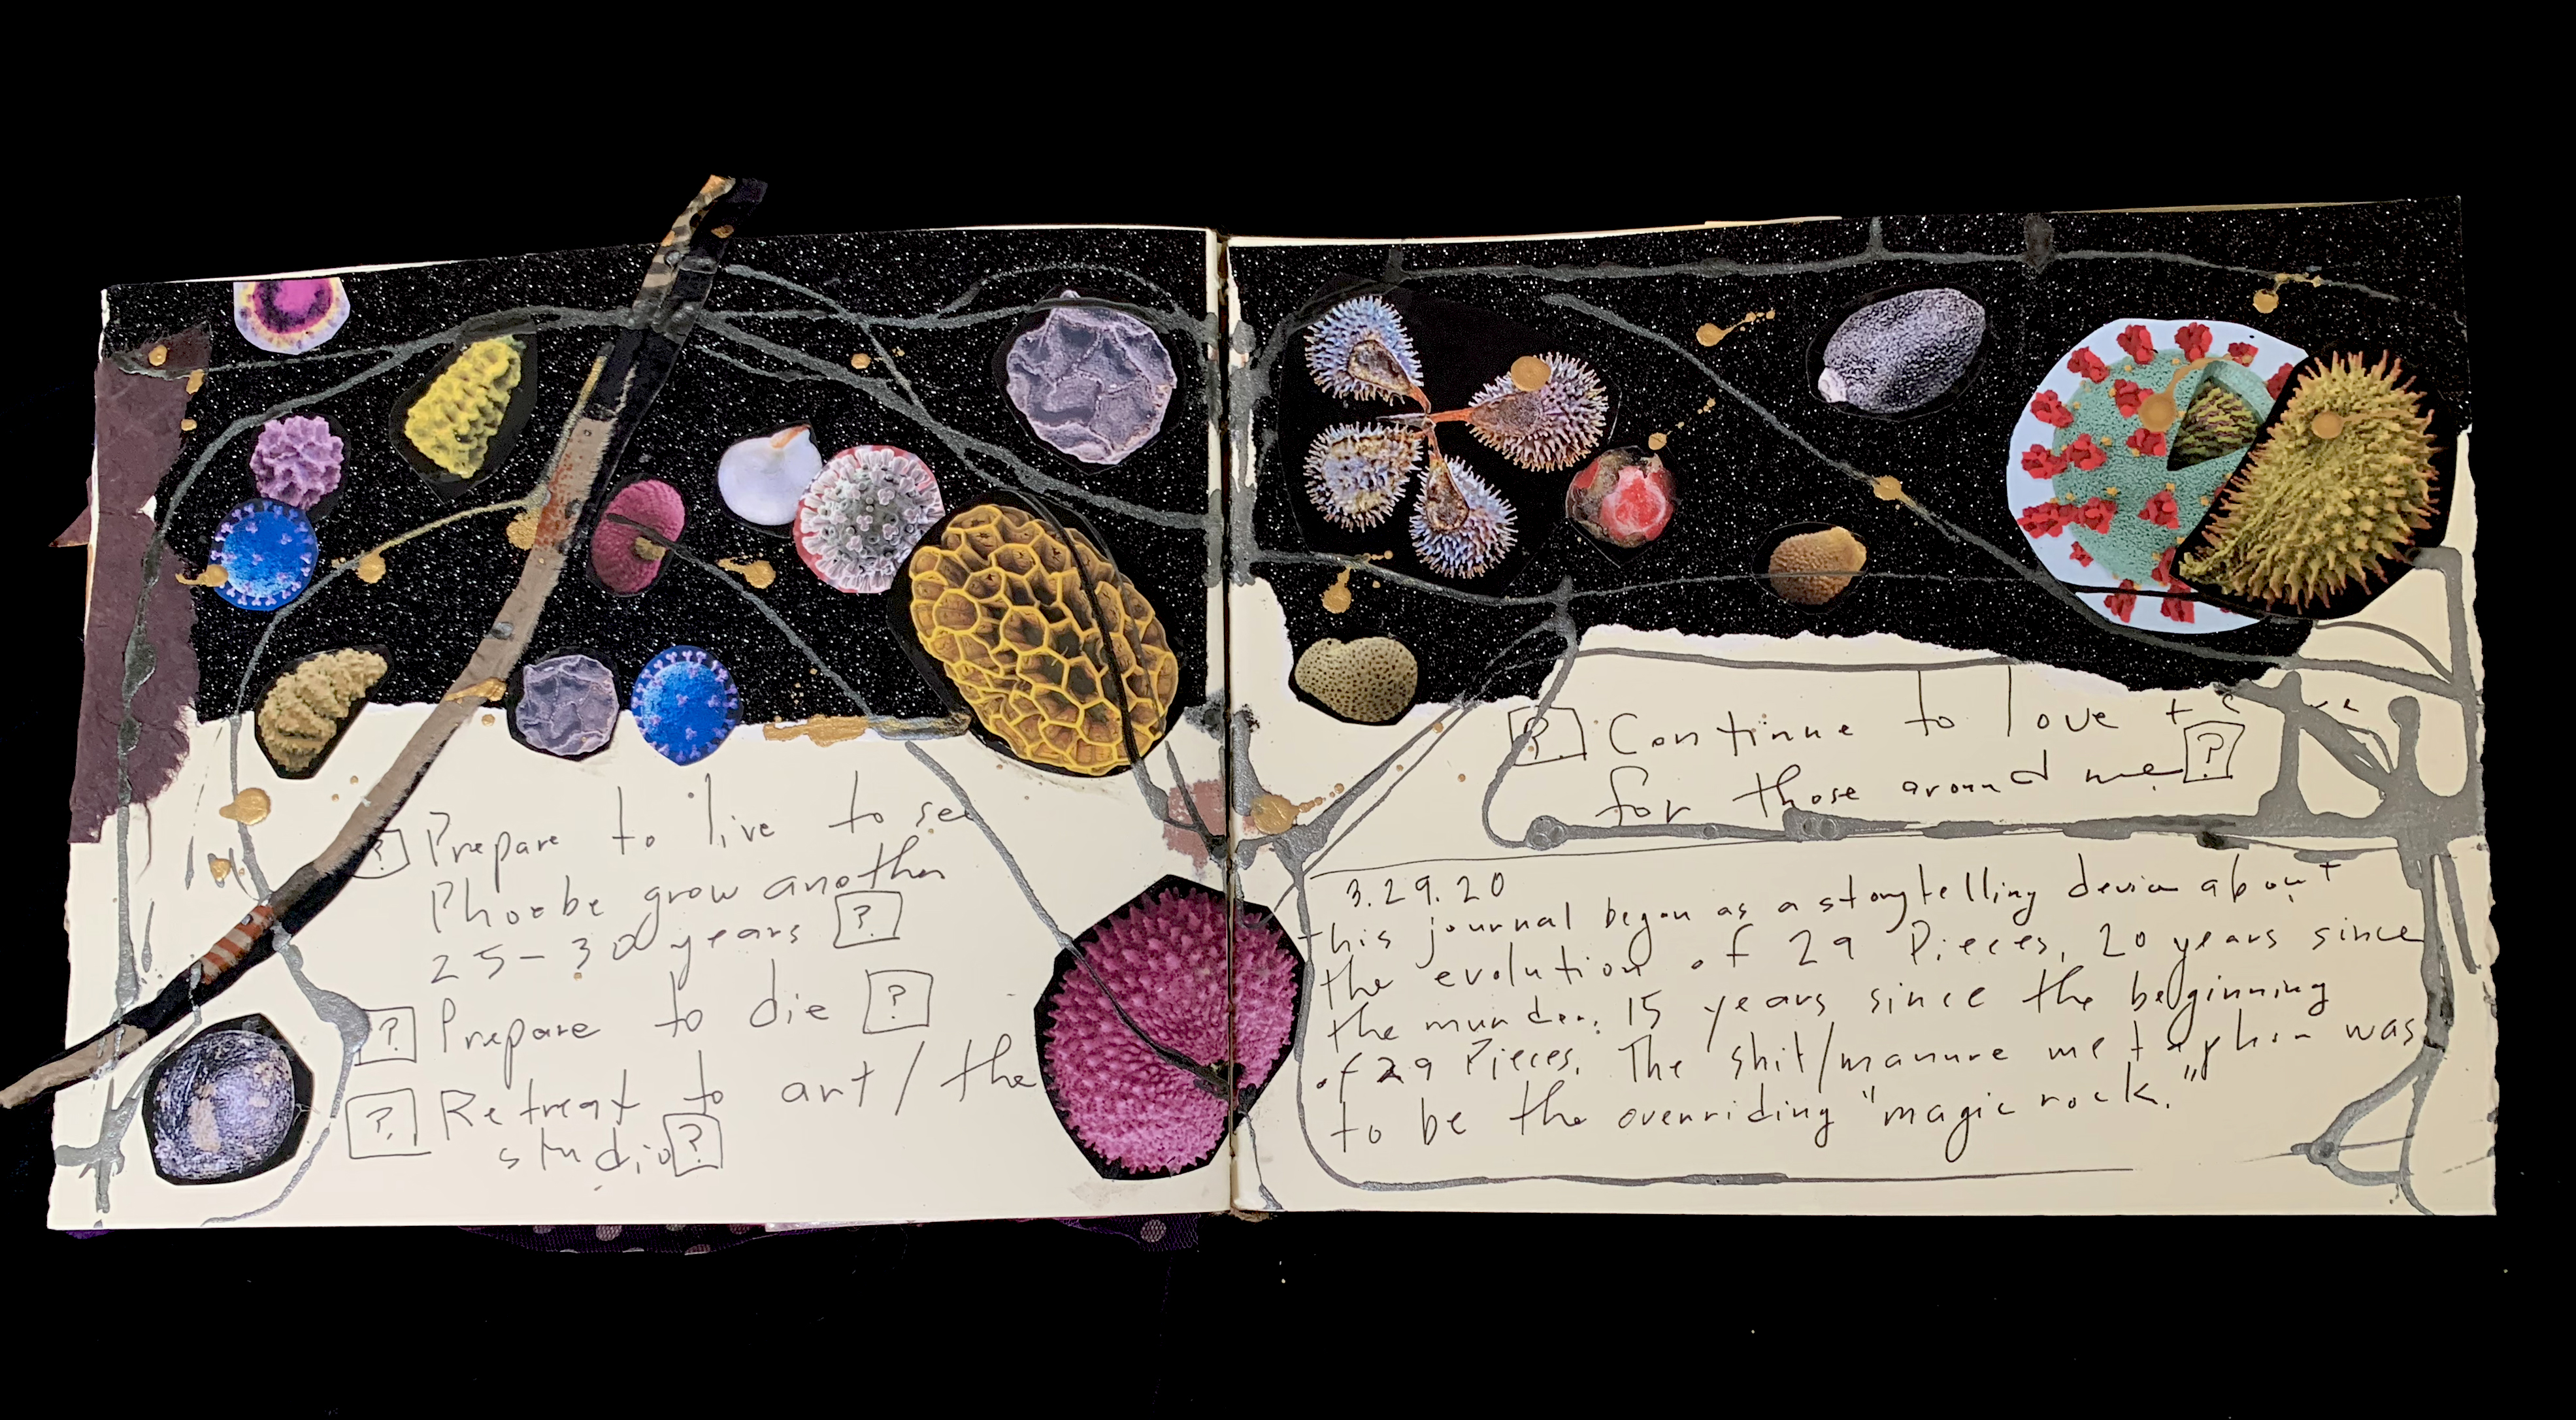 [?] Prepare to live to see
Phoebe grow another
25-30 years [?]
[?] Prepare to die [?]
[?] Retreat to art/the
studio [?]
[?] Continue to love
for those around me [?]
3.29.20
This journal began as a storytelling device about
the evolution of 29 Pieces, 20 years since
the murder; 15 years since the beginning
of 29 Pieces. The shit/manure metaphor was
to be the overriding "magic rock."